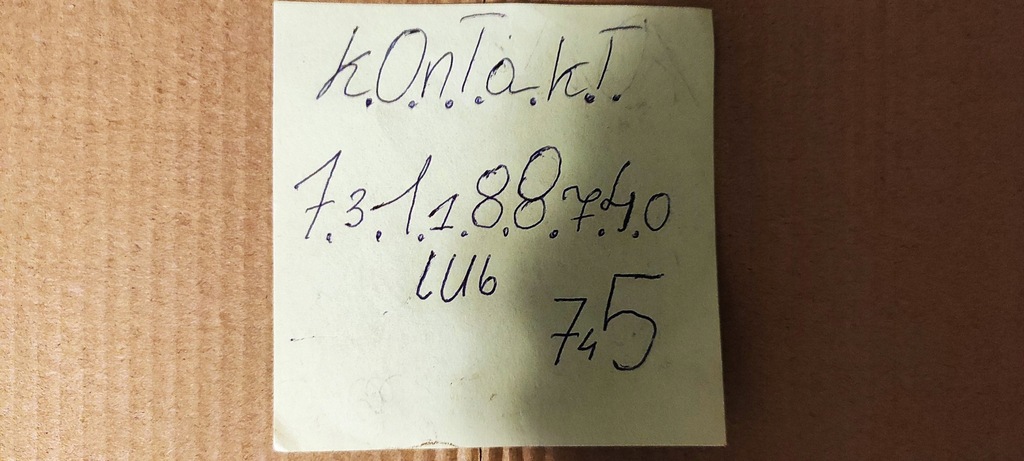 k.O.n.T.a.k.T.
7.3.1.1.8.8.7.4.0
lub
745